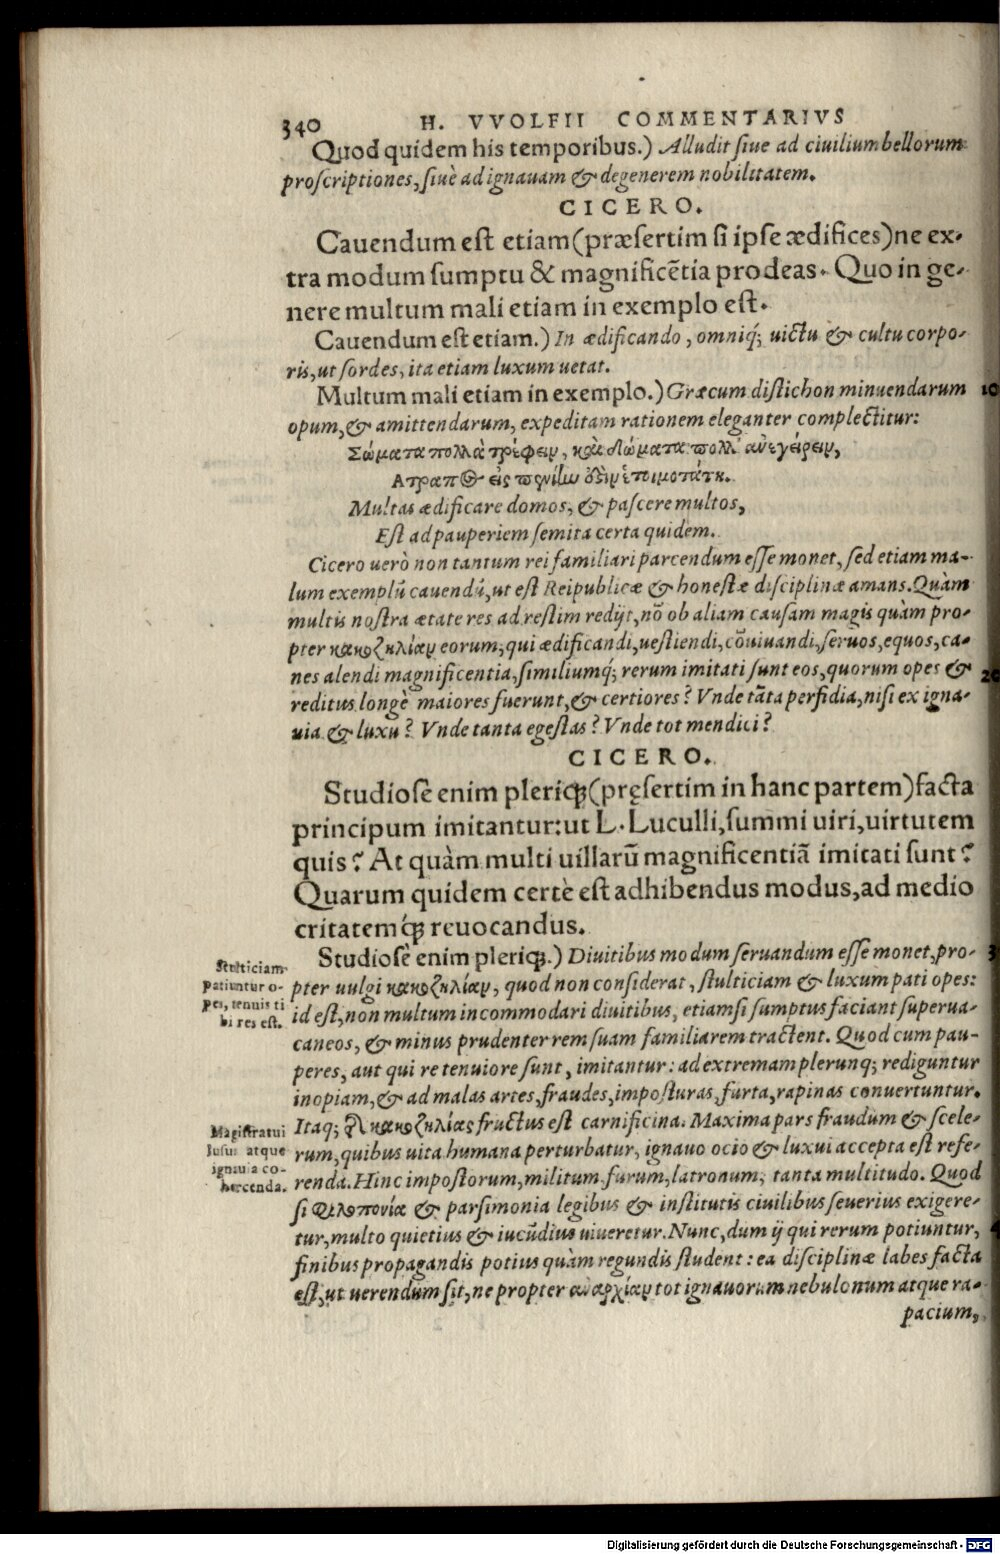 340 H. VVOLFII COMMENTARIVS
Quod quidem his temporibus.) Alludit siue ad ciuilium bellorum
proscriptiones, siuè ad ignauam & degenerem nobilitatem.
CICERO.
Cauendum est etiam (præsertim si ipse ædifices) ne ex-
tra modum sumptu & magnificẽtia prodeas. Quo in ge-
nere multum mali etiam in exemplo est.
Cauendum est etiam.) In ædificando, omniq́; uictu & cultu corpo-
ris, ut sordes, ita etiam luxum uetat.
Multum mali etiam in exemplo.) Græcum distichon minuendarum 10
opum, & amittendarum, expeditam rationem eleganter complectitur:
Σώματα πολλὰ τρέφειν, καὶ δώματα πολλ' ἀνεγείρειν,
Ἀτραπὸς εἰς πενίην ὅδὲιν ἑτοιμοτάτη.
Multas ædificare domos, & pascere multos,
Est ad pauperiem semita certa quidem.
Cicero uerò non tantum rei familiari parcendum esse monet, sed etiam ma-
lum exemplũ cauendũ, ut est Reipublicæ & honestæ disciplinæ amans. Quàm
multis nostra ætate res ad restim redijt, nõ ob aliam causam magis quàm pro-
pter κακοζηλίαν eorum, qui ædificandi, uestiendi, cõuiuandi, seruos, equos, ca-
nes alendi magnificentia, similiumq́; rerum imitati sunt eos, quorum opes & 20
reditus longè maiores fuerunt, & certiores? Vnde tãta perfidia, nisi ex igna-
uia & luxu? Vnde tanta egestas? Vnde tot mendici?
CICERO.
Studiosè enim pleriq; (pręsertim in hanc partem) facta
principum imitantur: ut L. Luculli, summi uiri, uirtutem
quis? At quàm multi uillarũ magnificentiã imitati sunt?
Quarum quidem certè est adhibendus modus, ad medio
critatemq́; reuocandus.
Studiosè enim pleriq;.) Diuitibus modum seruandum esse monet, pro-
pter uulgi κακοζηλίαν, quod non considerat, stulticiam & luxum pati opes:
id est, non multum incommodari diuitibus, etiamsi sumptus faciant superua-
caneos, & minus prudenter rem suam familiarem tractent. Quod cum pau-
peres, aut qui re tenuiore sunt, imitantur: ad extremam plerunq; rediguntur
inopiam, & ad malas artes, fraudes, imposturas, furta, rapinas conuertuntur.
Stulticiam
patiuntur o-
pes, tenuis ti
bi res est.
Itaq; κακοζηλίας fructus est carnificina. Maxima pars fraudum & scele-
rum, quibus uita humana perturbatur, ignauo ocio & luxui accepta est refe-
renda. Hinc impostorum, militum, furum, latronum, tanta multitudo. Quod
si φιλοπονία & parsimonia legibus & institutis ciuilibus seuerius exigere-
tur, multo quietius & iucũdius uiueretur. Nunc, dum ij qui rerum potiuntur,
finibus propagandis potius quàm regundis student: ea disciplinæ labes facta
est, ut uerendum sit, ne propter ἀναρχίαν tot ignauorum nebulonum atque ra-
pacium,
Magistratui
lusui atque
ignauia co-
hercenda.
Digitalisierung gefördert durch die Deutsche Forschungsgemeinschaft - DFG